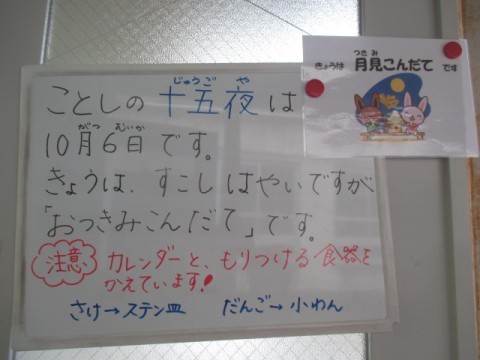 きょうは 月見こんだて です
つきみ
ことしの 十五夜 は
じゅうごや
10月6日です。
がつ むいか
きょうは、すこしはやいですが
「おつきみこんだて」です。
注意 カレンダーと、もりつける食器を
かえています!
さけ→ステン皿 だんご→小わん